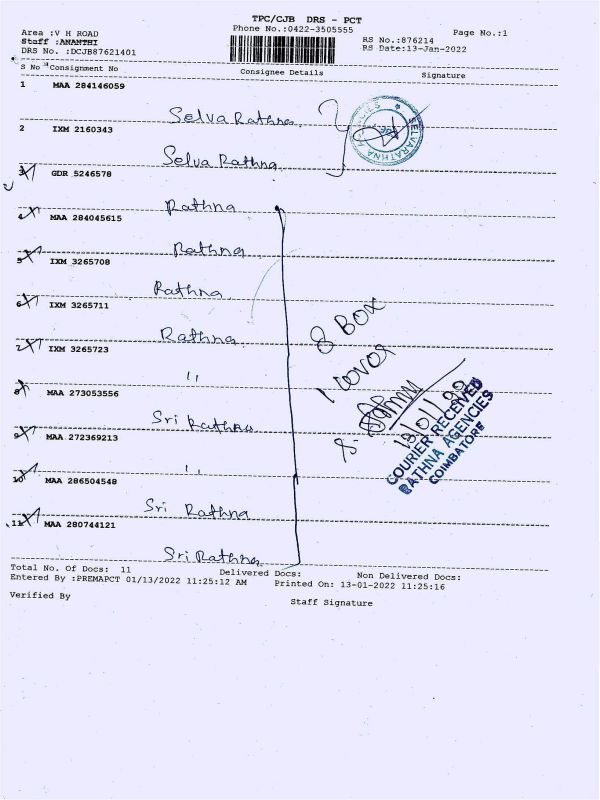 TPC/CJB DRS - PCT
Phone No.:0422-3505555
Page No.:1
Area :V H ROAD
Staff :ANANTHI
DRS No. :DCJB87621401
RS No.:876214
RS Date:13-Jan-2022
S No Consignment No Consignee Details Signature
1 MAA 284146059
Selva Rathna
2 IXM 2160343
Selva Rathna
SELVARATHNA AGENCIES
3 GDR 5246578
Rathna
4 MAA 284045615
Rathna
5 IXM 3265708
Rathna
6 IXM 3265711
Rathna
7 IXM 3265723
"
8 MAA 273053556
Sri Rathna
9 MAA 272369213
"
10 MAA 286504548
Sri Rathna
11 MAA 280744121
Sri Rathna
8 Box
1 Cover
13/01/22
COURIER RECEIVED
RATHNA AGENCIES
COIMBATORE
Total No. Of Docs: 11 Delivered Docs: Non Delivered Docs:
Entered By :PREMAPCT 01/13/2022 11:25:12 AM Printed On: 13-01-2022 11:25:16
Verified By Staff Signature